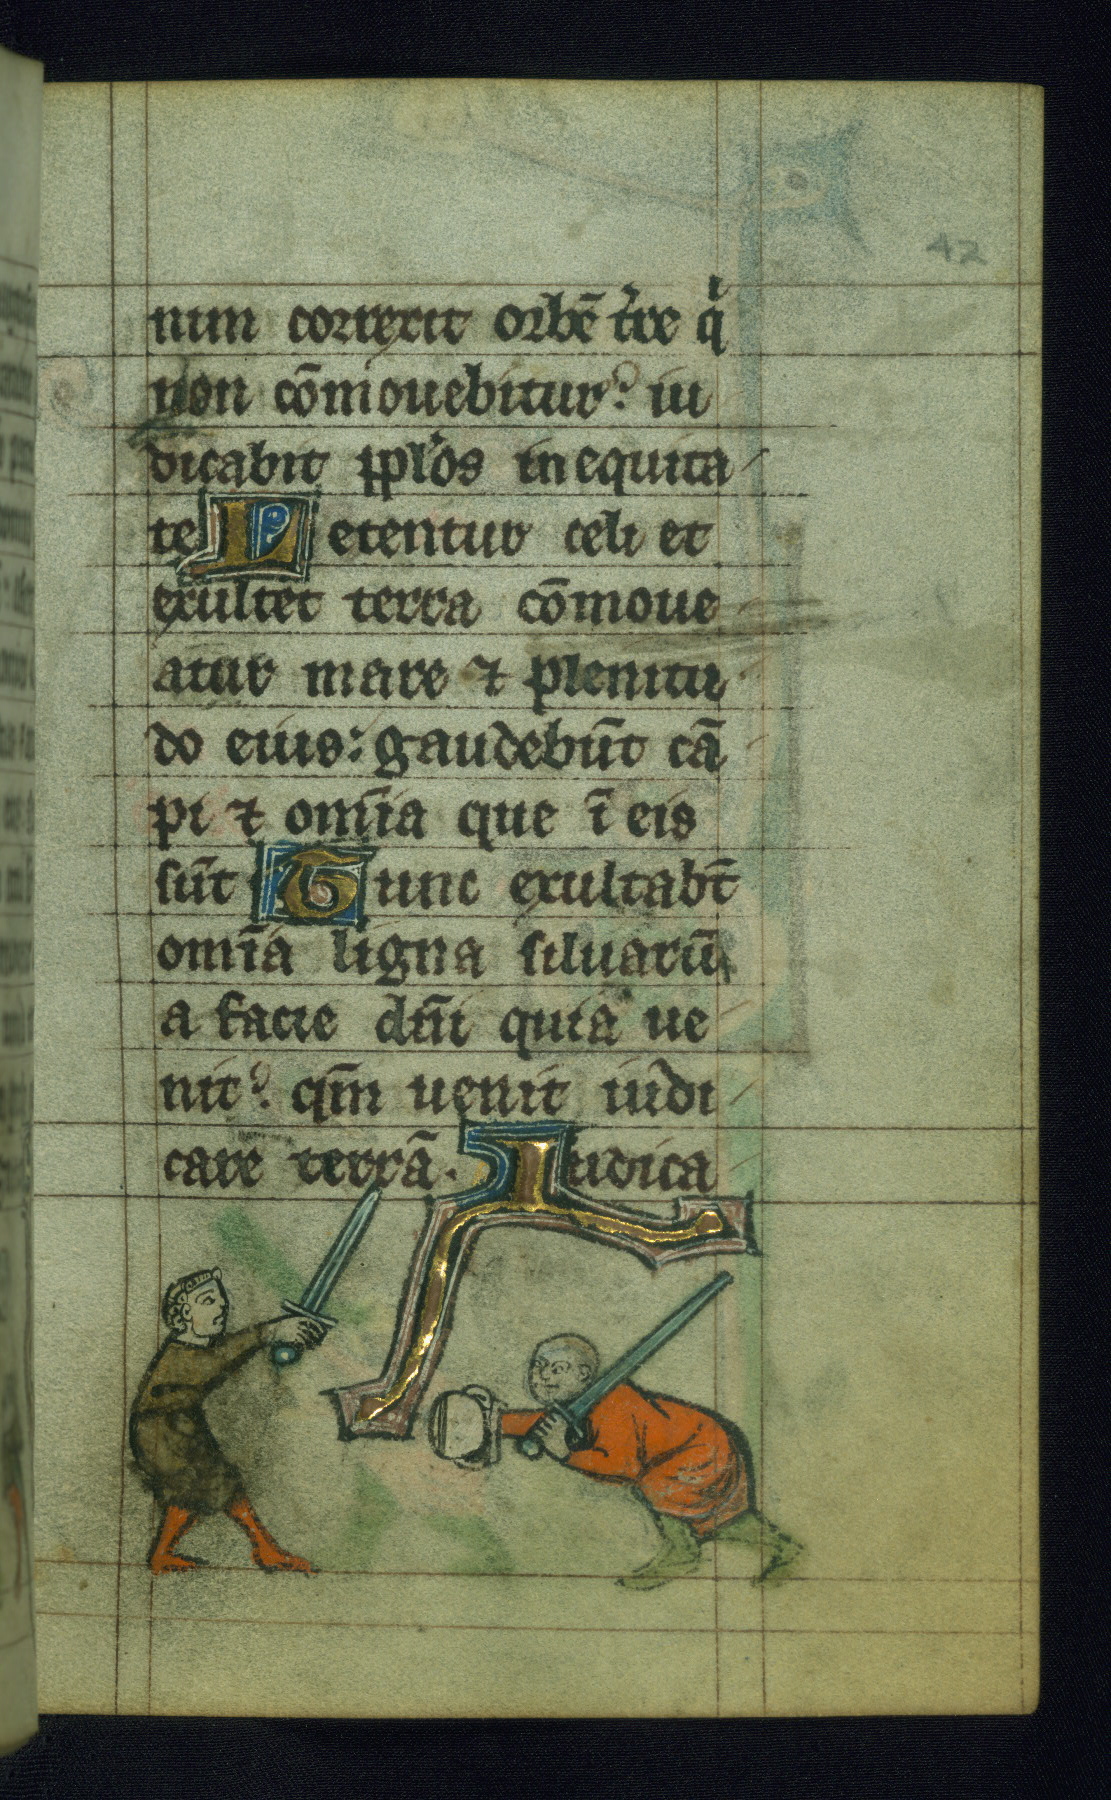 42
nim correxit orbē t̾re q̾
non cōmouebitur: iu
dicabit pplos in equita
te Letentur celi et
exultet terra cōmoue
atur mare ⁊ plenitu
do eius: gaudebūt cā
pi ⁊ om̄ia que ī eis
sūt Tunc exultabt̄
om̄ia ligna siluarū
a facie dn̄i quia ue
nit: qm̄ uenit iudi
care terrā. Iudica